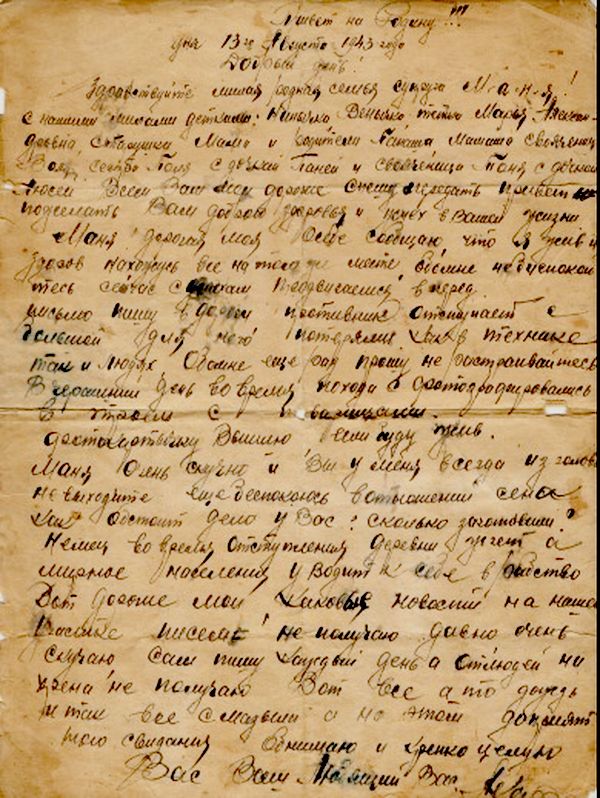 Привет на Родину!!!
дня 13го Августа 1943 года
Добрый день!
Здравствуйте милая родная семья супруга М-а-н-я!
с нашими милыми детками: Ниночка Веночка тетья Марья Алексан-
дровна, старушки Мама и родители Папаша Мамаша свояченец
Вова, сестра Поля с дочкай Таней и свояченица Тоня с дочкай
Люсей Всем Вам мои дорогие спешу передать привет
подселать Вам доброго здоровья и успех в Вашей жизни
Маня дорогая моя О себе сообщаю что я жив и
здоров нахожусь все на том же месте, обомне небиспокой
тесь сейчас с боями продвигаемся в перед
письмо пишу в дороги противник отступает с
большей для него потерями как в технике
так и людях. Обомне еще раз прошу не растраивайтесь
Вчерашний день во время похода сфотографировались
в троем с товарищами.
фотокарточку Вышлю если буду жив.
Маня Очень скучно и Вы у меня всегда из головы
не выходите еще беспокоюсь вотношении сена
как обстоит дело у Вас? сколько заготовили?
Немец во время отступления деревни жгет а
мирное населения уводит к себе в рабство
Вот дорогие мои каковые новости на нашем
участке писем не получаю давно очень
скучаю сам пишу каждый день а от людей ни
хрена не получаю Вот все а то дождь
и так все смазывы а на этом до
того свидания Обнимаю и крепко целую
Вас Ваш Любящий Вас.